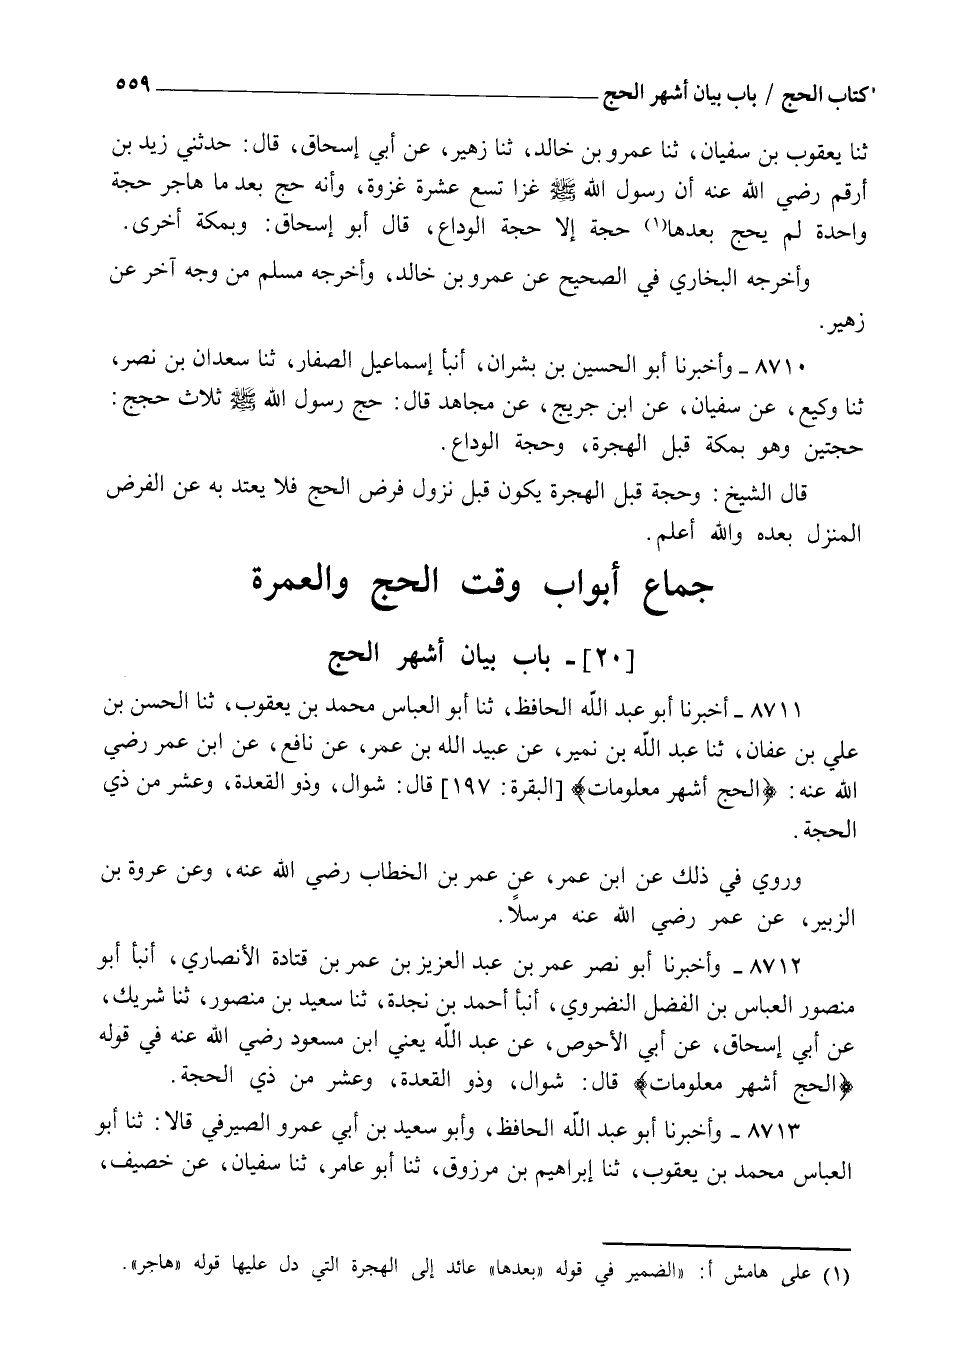 كتاب الحج / باب بيان أشهر الحج ٥٥٩
ثنا يعقوب بن سفيان، ثنا عمرو بن خالد، ثنا زهير، عن أبي إسحاق، قال: حدثني زيد بن
أرقم رضي الله عنه أن رسول الله ﷺ غزا تسع عشرة غزوة، وأنه حج بعد ما هاجر حجة
واحدة لم يحج بعدها(١) حجة إلا حجة الوداع، قال أبو إسحاق: وبمكة أخرى.
وأخرجه البخاري في الصحيح عن عمرو بن خالد، وأخرجه مسلم من وجه آخر عن
زهير.
٨٧١٠ ـ وأخبرنا أبو الحسين بن بشران، أنبأ إسماعيل الصفار، ثنا سعدان بن نصر،
ثنا وكيع، عن سفيان، عن ابن جريج، عن مجاهد قال: حج رسول الله ﷺ ثلاث حجج:
حجتين وهو بمكة قبل الهجرة، وحجة الوداع.
قال الشيخ: وحجة قبل الهجرة يكون قبل نزول فرض الحج فلا يعتد به عن الفرض
المنزل بعده والله أعلم.
جماع أبواب وقت الحج والعمرة
[٢٠] ـ باب بيان أشهر الحج
٨٧١١ ـ أخبرنا أبو عبد الله الحافظ، ثنا أبو العباس محمد بن يعقوب، ثنا الحسن بن
علي بن عفان، ثنا عبد الله بن نمير، عن عبيد الله بن عمر، عن نافع، عن ابن عمر رضي
الله عنه: ﴿الحج أشهر معلومات﴾ [البقرة: ١٩٧] قال: شوال، وذو القعدة، وعشر من ذي
الحجة.
وروي في ذلك عن ابن عمر، عن عمر بن الخطاب رضي الله عنه، وعن عروة بن
الزبير، عن عمر رضي الله عنه مرسلًا.
٨٧١٢ ـ وأخبرنا أبو نصر عمر بن عبد العزيز بن عمر بن قتادة الأنصاري، أنبأ أبو
منصور العباس بن الفضل النضروي، أنبأ أحمد بن نجدة، ثنا سعيد بن منصور، ثنا شريك،
عن أبي إسحاق، عن أبي الأحوص، عن عبد الله يعني ابن مسعود رضي الله عنه في قوله
﴿الحج أشهر معلومات﴾ قال: شوال، وذو القعدة، وعشر من ذي الحجة.
٨٧١٣ ـ وأخبرنا أبو عبد الله الحافظ، وأبو سعيد بن أبي عمرو الصيرفي قالا: ثنا أبو
العباس محمد بن يعقوب، ثنا إبراهيم بن مرزوق، ثنا أبو عامر، ثنا سفيان، عن خصيف،
(١) على هامش أ: «الضمير في قوله «بعدها» عائد إلى الهجرة التي دل عليها قوله «هاجر».